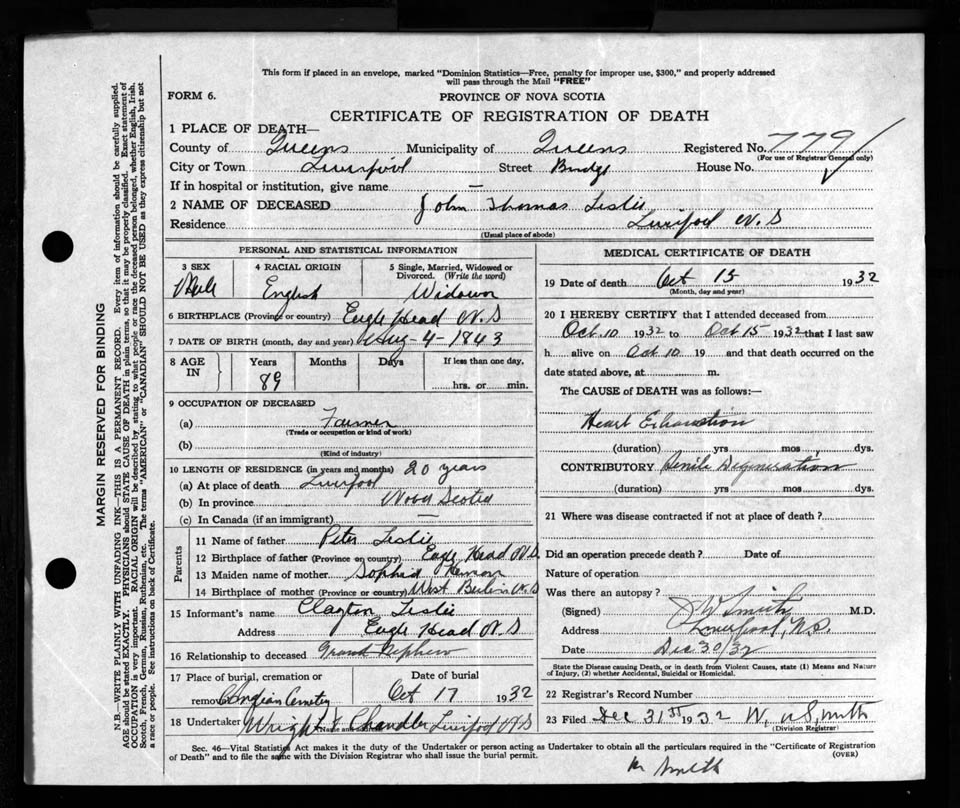 This form if placed in an envelope, marked "Dominion Statistics—Free, penalty for improper use, $300," and properly addressed
will pass through the Mail "FREE"
FORM 6.
PROVINCE OF NOVA SCOTIA
CERTIFICATE OF REGISTRATION OF DEATH
1 PLACE OF DEATH—
County of Queens Municipality of Queens Registered No. 779
(For use of Registrar General only)
City or Town Liverpool Street Bridge House No.
If in hospital or institution, give name —
2 NAME OF DECEASED John Thomas Leslie
Residence Liverpool N.S
(Usual place of abode)
PERSONAL AND STATISTICAL INFORMATION
3 SEX
Male
4 RACIAL ORIGIN
English
5 Single, Married, Widowed or
Divorced. (Write the word)
Widower
6 BIRTHPLACE (Province or country) Eagle Head N.S
7 DATE OF BIRTH (month, day and year) Aug-4-1843
8 AGE IN Years Months Days If less than one day,
89 hrs. or min.
9 OCCUPATION OF DECEASED
(a) Farmer
(Trade or occupation or kind of work)
(b)
(Kind of industry)
10 LENGTH OF RESIDENCE (in years and months) 20 years
(a) At place of death Liverpool
(b) In province Nova Scotia
(c) In Canada (if an immigrant) —
Parents
11 Name of father Peter Leslie
12 Birthplace of father (Province or country) Eagle Head N.S.
13 Maiden name of mother Sophia
14 Birthplace of mother (Province or country) West Berlin N.S
15 Informant's name Clayton Leslie
Address Eagle Head N.S
16 Relationship to deceased Grand Nephew
17 Place of burial, cremation or Date of burial
removal Cemetery Oct 17 1932
18 Undertaker Wright & Chandler Liverpool N.S
(Name and address)
MEDICAL CERTIFICATE OF DEATH
19 Date of death Oct 15 1932
(Month, day and year)
20 I HEREBY CERTIFY that I attended deceased from
Oct. 10 1932 to Oct 15 1932 that I last saw
h alive on Oct 10 19 and that death occurred on the
date stated above, at m.
The CAUSE of DEATH was as follows:—
Heart Exhaustion
(duration) yrs mos dys.
CONTRIBUTORY Senile Degeneration
(duration) yrs mos dys.
21 Where was disease contracted if not at place of death?
Did an operation precede death? Date of
Nature of operation
Was there an autopsy?
(Signed) J W Smith M.D.
Address Liverpool, N.S.
Date Dec 30/32
State the Disease causing Death, or in death from Violent Causes, state (1) Means and Nature
of Injury, (2) whether Accidental, Suicidal or Homicidal.
22 Registrar's Record Number
23 Filed Dec 31st 1932 W. Smith
(Division Registrar)
Sec. 46—Vital Statistics Act makes it the duty of the Undertaker or person acting as Undertaker to obtain all the particulars required in the "Certificate of Registration
of Death" and to file the same with the Division Registrar who shall issue the burial permit. (OVER)
Smith
MARGIN RESERVED FOR BINDING
N.B.—WRITE PLAINLY WITH UNFADING INK—THIS IS A PERMANENT RECORD. Every item of information should be carefully supplied.
AGE should be stated EXACTLY. PHYSICIANS should STATE CAUSE OF DEATH in plain terms, so that it may be properly classified. Exact statement of
OCCUPATION is very important. RACIAL ORIGIN will be described by stating to what people or race the deceased person belonged, whether English, Irish,
Scotch, French, German, Russian, Ruthenian, etc. The terms "AMERICAN" or "CANADIAN" SHOULD NOT BE USED as they express citizenship but not
a race or people. See instructions on back of Certificate.